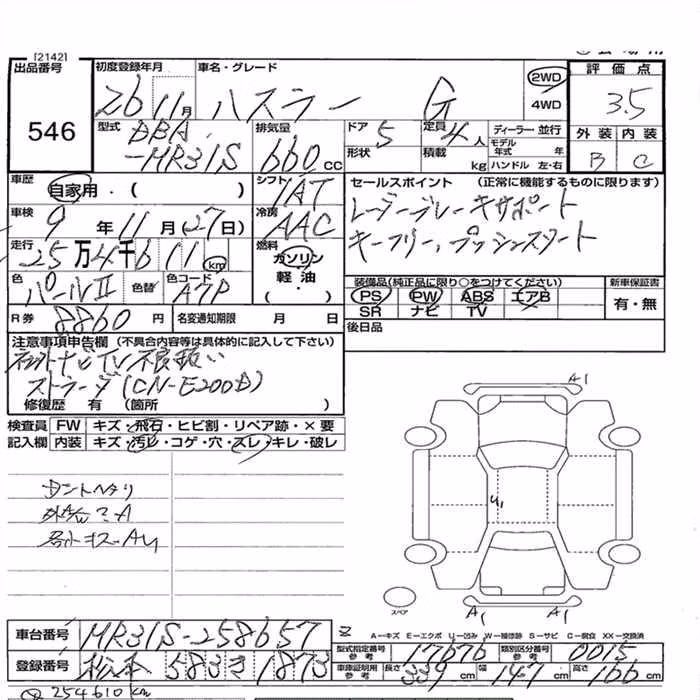 [2142]
出品番号 初度登録年月 車名・グレード 2WD 評価点
546 26 11月 ハスラー G 4WD 3.5
型式 排気量 ドア 5 定員 4人 ディーラー・並行 外装 内装
DBA-MR31S 660cc 形状 積載 kg モデル年式 年 ハンドル 左・右 B C
車歴 自家用・( ) シフト IAT セールスポイント (正常に機能するものに限ります)
車検 9年11月(27日) 冷房 AAC レーダーブレーキサポート
走行 25万4千611km 燃料 ガソリン 軽油 ・( ) キーフリー、プッシュスタート
色 パールII 色替 色コード A7P 装備品(純正品に限り○をつけてください) 新車保証書
PS PW ABS エアB 有・無
SR ナビ TV
R券 8860円 名変通知期限 月 日 後日品
注意事項申告欄 (不具合内容等は具体的に記入して下さい)
ナビTV不良扱い
ストラーダ(CN-E200D)
修復歴 有 (箇所 )
検査員 FW キズ・飛石・ヒビ割・リペア跡・×要
記入欄 内装 キズ・汚レ・コゲ・穴・スレ・キレ・破レ
A1
U1
スペア
A1 A1
A－キズ E－エクボ U－凹み W－補修跡 S－サビ C－腐食 XX－交換済
車台番号 MR31S-258657 型式指定番号 17676 類別区分番号 0015
登録番号 松本 583 き 1873 車庫証明用参考 長さ 339cm 幅 147cm 高さ 166cm
254610km